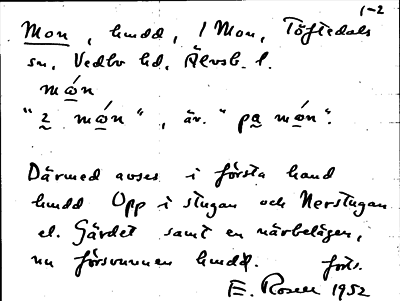 1-2
Mon, hmdd, 1 Mon, Töftedals
sn, Vedbo hd, Älvsb. l.
mǫ́n
"i mǫ́n", äv. "pa mǫ́n".
Därmed avses i första hand
hmdd Opp i stugan och Nerstugan
el. Gärdet samt en närbelägen,
nu försvunnen hmdd. forts.
E. Rosell 1952